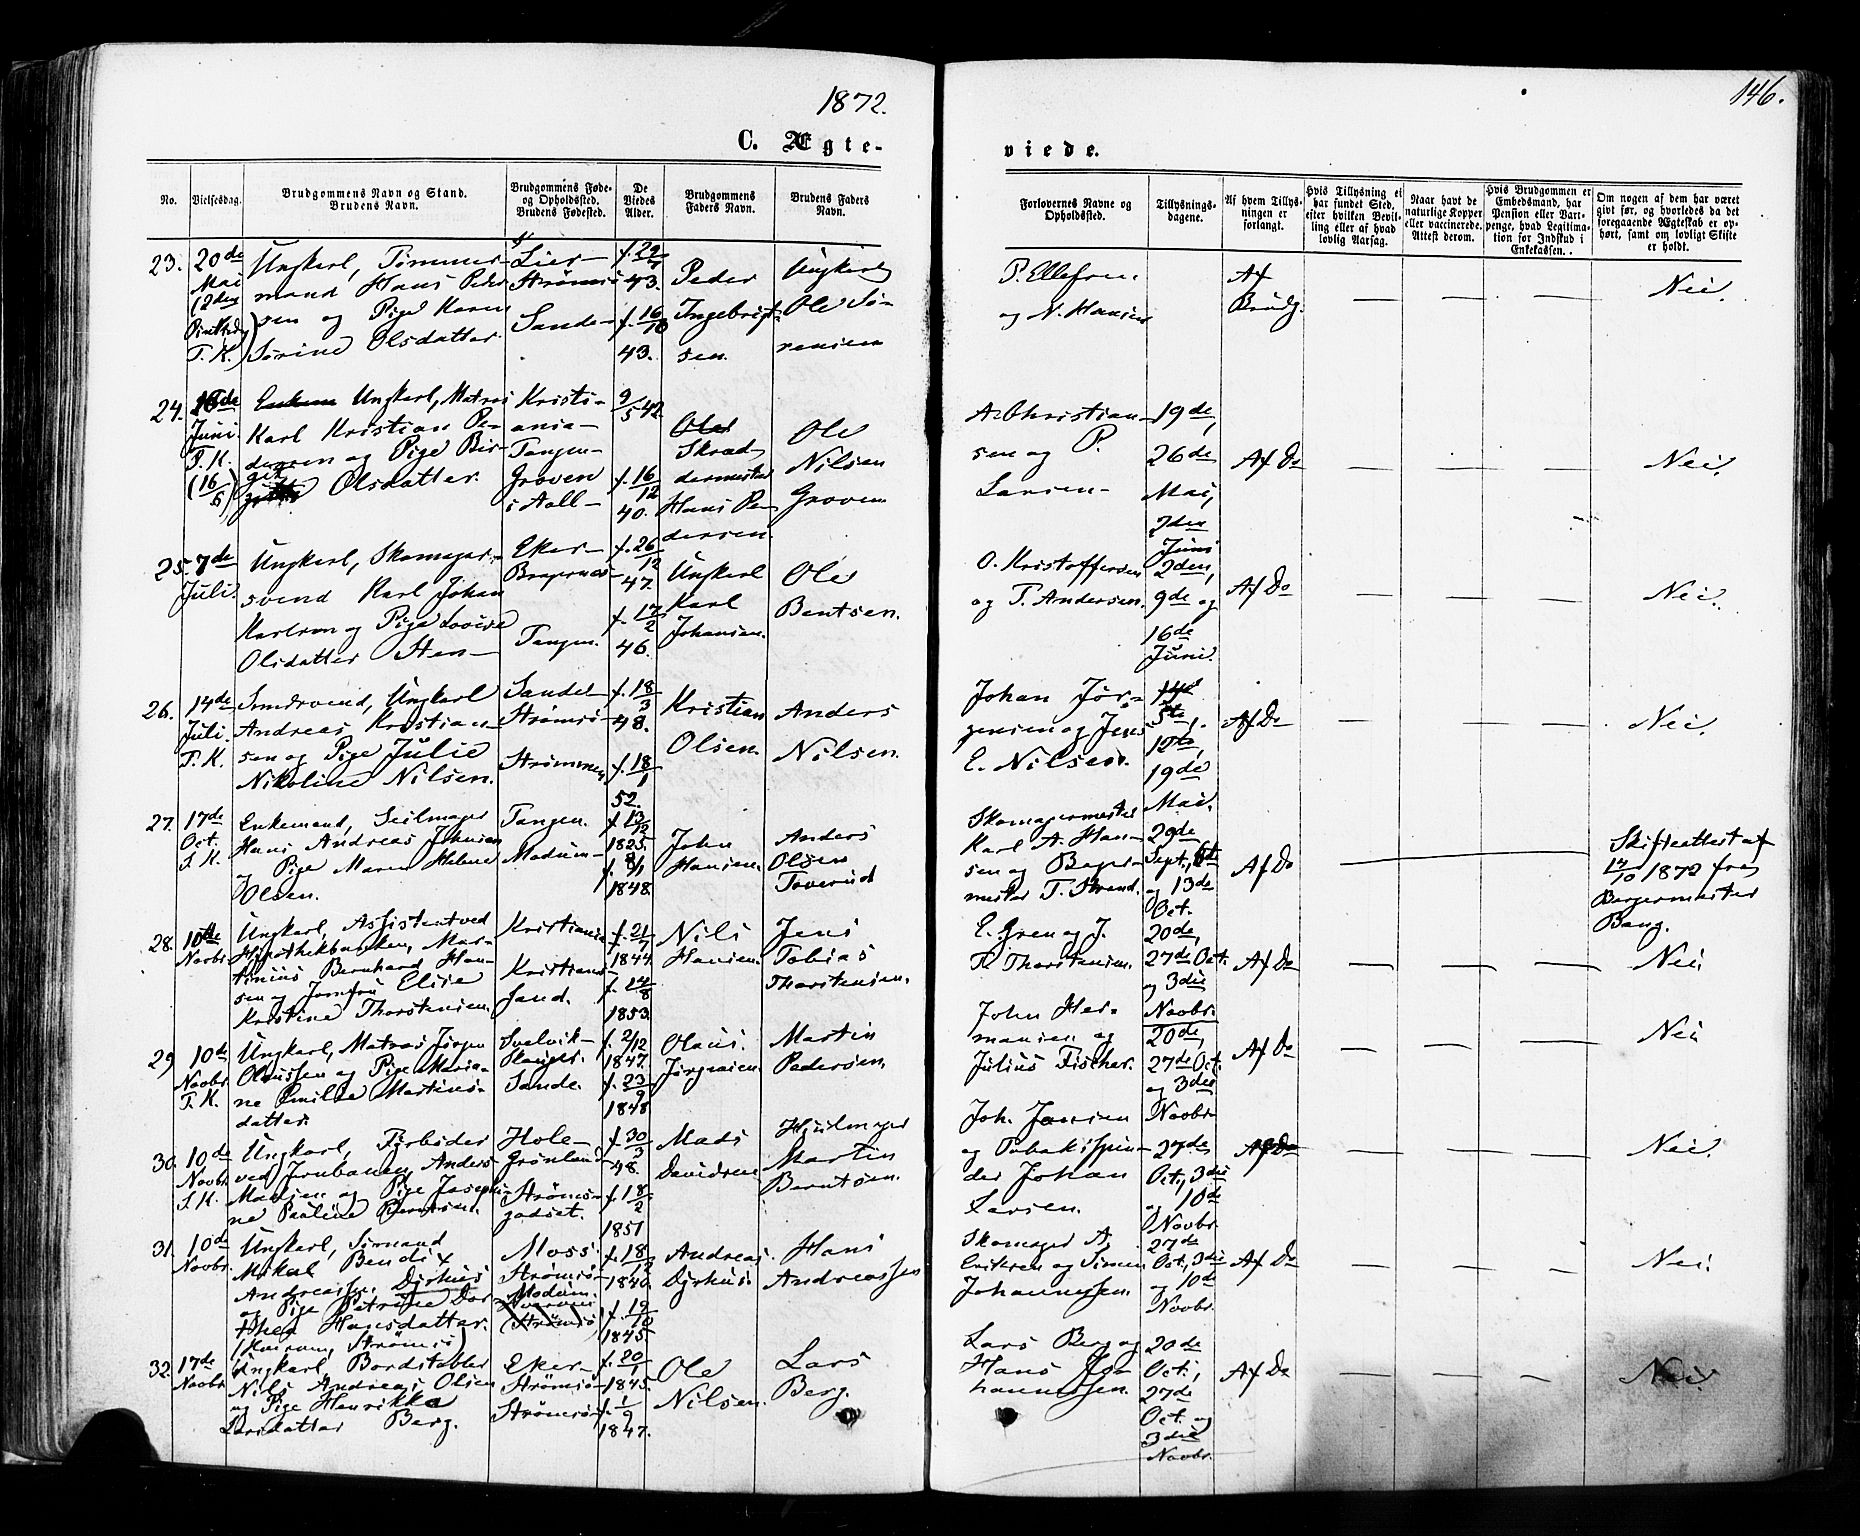 1872.
146.
C. Ægte-
viede.
No.
Vielsesdag.
Brudgommens Navn og Stand.
Brudens Navn.
Brudgommens Føde-
og Opholdssted.
Brudens Fødested.
De
Viedes
Alder.
Brudgommens
Faders Navn.
Brudens Faders
Navn.
Forlovernes Navne og
Opholdssted.
Tillysnings-
dagene.
Af hvem Tillys-
ningen er
forlangt.
Hvis Tillysning ei
har fundet Sted,
efter hvilken Bevil-
ling eller af hvad
lovlig Aarsag.
Naar havt de
naturlige Kopper
eller vaccinerede.
Attest derom.
Hvis Brudgommen er
Embedsmand, har
Pension eller Vart-
penge, hvad Legitima-
tion for Indskud i
Enkekassen.
Om nogen af dem har været
gift før, og hvorledes da det
foregaaende Ægteskab er op-
hørt, samt om lovligt Skifte
er holdt.
23.
20de
Mai
(2den
T. K.
Ungkarl, Tømmer-
mand Hans Peder-
sen og Pige Karen
Sørine Olsdatter.
Lier-
Strømsø
Sande-
f. 29/7
43.
f. 16/10
43.
Peder
Ingebrigt-
sen.
Ungkarl
Ole Sø-
rensen
P. Ellefsen
og N. Hansen
Af
Brudg.
— — —
Nei.
24.
16de
Juni.
T. K.
(16/6)
Enkem Ungkarl, Matros
Karl Kristian Pe-
dersen og Pige Bir-
git Olsdatter.
Kristi-
ania-
Tangen-
Groven
i Aall-
9/5 42.
f. 16/12
40.
Ole
Skræd-
dermester
Hans Pe-
dersen.
Ole
Nilsen
Groven
A. Christian-
sen og P.
Larsen-
19de,
26de
Mai,
2den
Juni
Af Do
— — —
Nei.
25.
7de
Juli.
Ungkarl, Skomager-
svend Karl Johan
Karlsen og Pige Lovise
Olsdatter Sten-
Eker-
Bragernæs-
Tangen.
f. 26/12
47.
f. 17/2
46.
Ungkarl
Karl
Johansen.
Ole
Bentsen.
O. Kristoffersen
og T. Andersen.
2den,
9de og
16de
Juni.
Af Do
— — —
Nei.
26.
14de
Juli.
T. K.
Smedsvend, Ungkarl
Andreas Kristian-
sen og Pige Julie
Nikoline Nilsen.
Sande-
Strømsø-
Strømmen
f. 18/3
48.
f. 18/1
52.
Kristian
Olsen.
Anders
Nilsen.
Johan Jør-
gensen og Jens
E. Nilsen.
5te,
12te,
19de
Mai.
Af Do
— — —
Nei.
27.
17de
Oct.
S. K.
Enkemand, Seilmager
Hans Andreas Johnsen
og Pige Maren Helene
Olsen.
Tangen.
Modum-
f. 13/12
1825.
f. 8/1
1848.
John
Hansen.
Anders
Olsen
Toverud
Skomagermester
Karl A. Han-
sen og Bager-
mester T. Strand.
29de
Sept., 6te
og 13de
Oct.
Af Do
— — —
Skifteattest af
14/10 1872 fra
Borgermester
Bang.
28.
10de
Novbr.
Ungkarl, Assistent ved
Hypothekbanken, Mar-
tinius Bernhard Han-
sen og Jomfru Elise
Kristine Thorstensen.
Kristiania
Kristians-
sand.
f. 21/7
1844
f. 24/8
1853.
Nils
Hansen.
Jens
Tobias
Thorstensen.
E. Gren og J.
T. Thorstensen.
20de,
27de Oct.
og 3die
Novbr.
Af Do
— — —
Nei.
29
10de
Novbr.
T. K.
Ungkarl, Matros Jørgen
Olaussen og Pige Maria-
ne Emilie Martins-
datter.
Svelvik-
Hauger.
Sande.
f. 2/12
1847.
f. 23/9
1848
Olaus.
Jørgensen.
Martin
Pedersen.
John Her-
mansen og
Julius Fischer.
20de,
27de Oct.
og 3die
Novbr.
Af Do
— — —
Nei
30.
10de
Novbr.
S. K.
Ungkarl, Fyrbøder
ved Jernbanen, Anders
Madsen og Pige Josephi-
ne Pauline Berntsen.
Hole-
Grønland
Strøms-
godset.
f. 30/3
48.
f. 18/2
1851
Mads
Davidsen
Hjulmager
Martin
Berntsen.
Joh. Jansen
og Tobakspin-
der Johan
Larsen.
27de
Oct., 3die
og 10de
Novbr.
Af Do
— — —
Nei.
31.
10de
Novbr.
Ungkarl, Sømand
Mikal Bendix
Andreassen Dirkus
og Pige Petrine Dor-
thea Hansdatter.
(Kværum, Strømsø)
Moss.
Strømsø-
Modum.
(Strømsø)
f. 18/12
1840.
f. 19/10
1845.
Andreas
Dyrkus
Hans
Andreassen
Skomager A.
Eriksen og Simen
Johannessen.
27de
Oct., 3die
og 10de
Novbr.
Af Do
— — —
Nei.
32.
17de
Novbr.
Ungkarl Bordstabler
Nils Andreas Olsen
og Pige Henrikka
Larsdatter Berg.
Eker-
Strømsø-
Strømsø-
f. 20/1
1845.
f. 1/9
1847.
Ole
Nilsen.
Lars
Berg.
Lars Berg og
Hans Jo-
hannessen.
20de
Oct.,
27de
Oct. og
3die
Novbr.
Af Do
— — —
Nei.